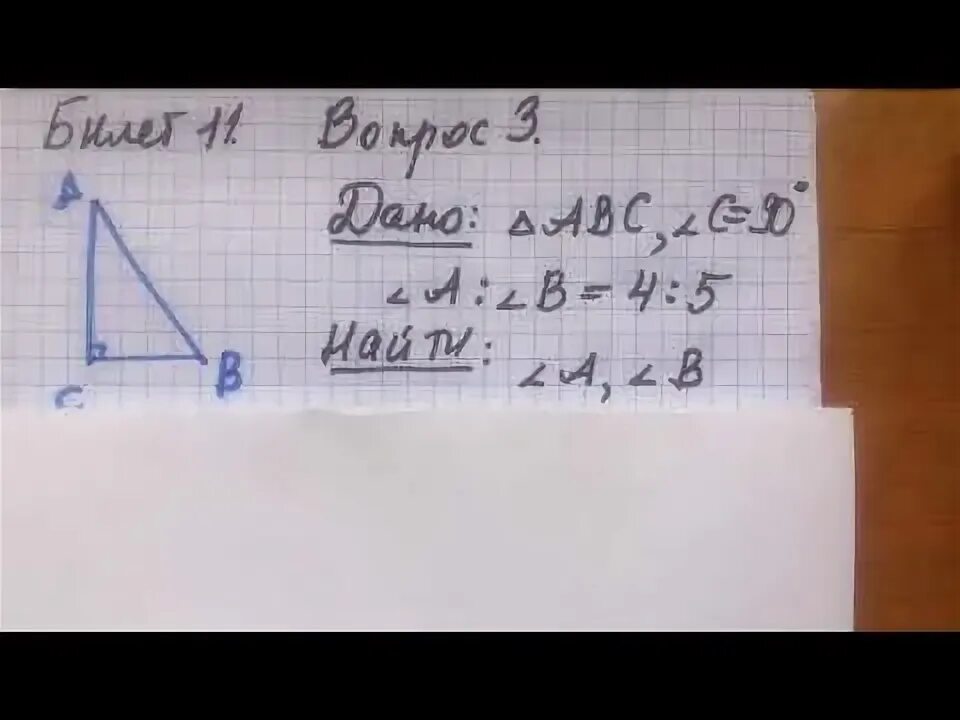 Билет 11. Вопрос 3.
Дано: △ABC, ∠C=90°
∠A:∠B=4:5
Найти: ∠A, ∠B
A
C
B